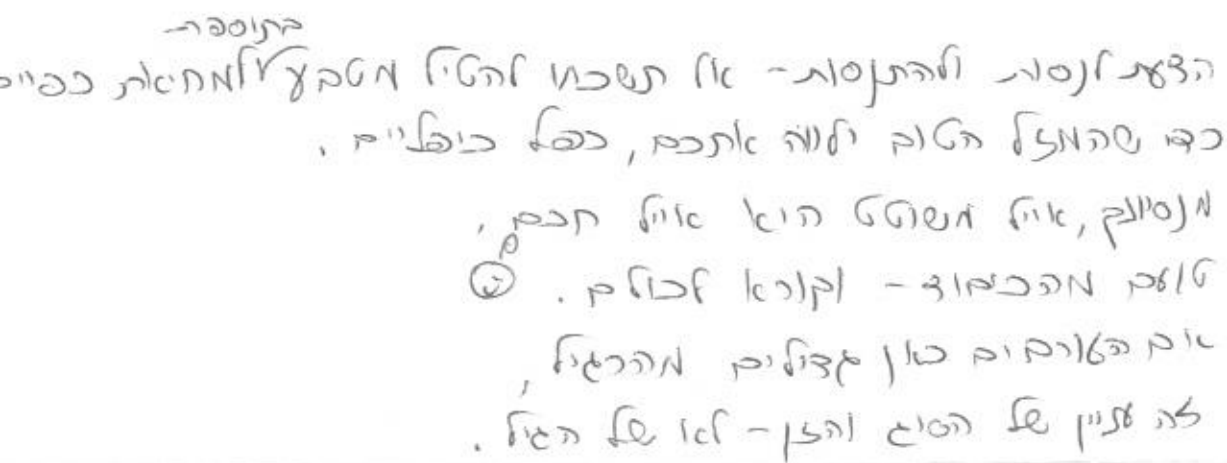 בתוספת
הצעת לנסות ולהתנסות - אל תשכחו להטיל מטבע למחיאת כפיים
כדי שהמזל הטוב ילווה אתכם, כפל כיפליים.
מנסיונם, אייל משוטט היא אייל חכם,
טועם מהכיבוד - וקורא לכולם.
אם העורבים כאן גדולים מהרגיל,
זה עניין של הסוג והזן - לא של הגיל.